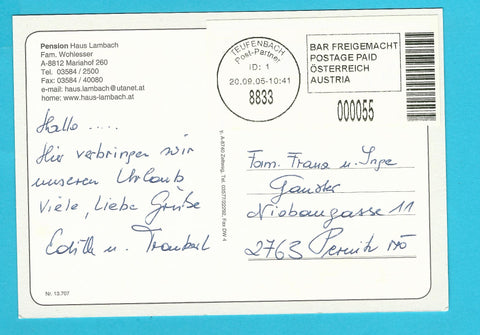 Pension Haus Lambach
Fam. Wohlesser
A-8812 Mariahof 260
Tel. 03584 / 2500
Fax: 03584 / 40080
e-mail: haus.lambach@utanet.at
home: www.haus-lambach.at
TEUFENBACH
Post-Partner
ID: 1
20.09.05-10:41
8833
BAR FREIGEMACHT
POSTAGE PAID
ÖSTERREICH
AUSTRIA
000055
Hallo .....
Hier verbringen wir
unseren Urlaub
Viele, liebe Grüße
Edith u.
Fam. Franz u. Inge
Niebaugasse 11
2763 Pernitz NÖ
Nr. 13.707